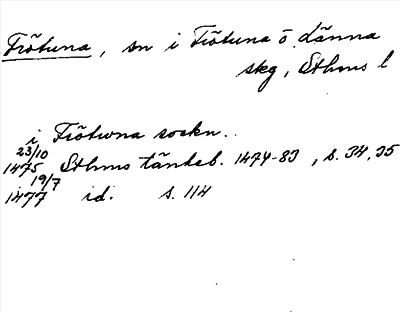 Frötuna, sn i Frötuna o Länna
skg, Sthms l
i Frötuna sockn..
23/10
1475 Sthms tänkeb. 1474-83, s. 34, 35
19/7
1477 id. s. 114